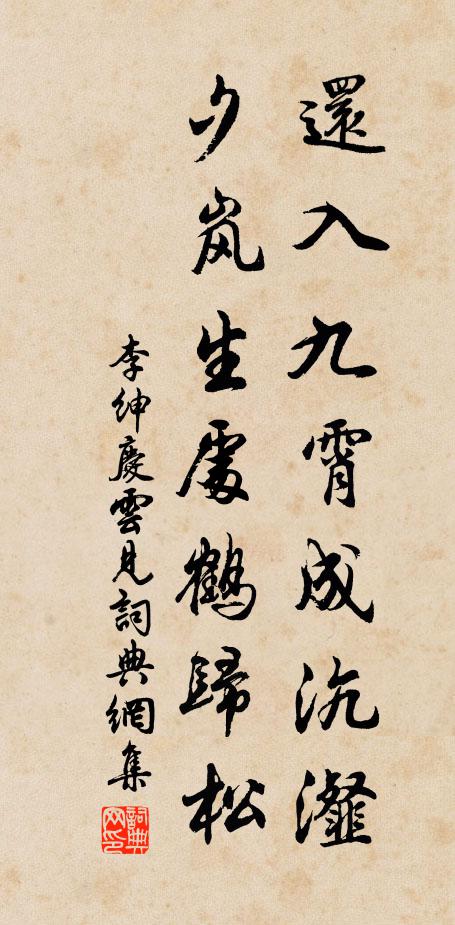 還入九霄成沆瀣
夕嵐生處鶴歸松
李紳慶雲見詞典網集
詞典网印